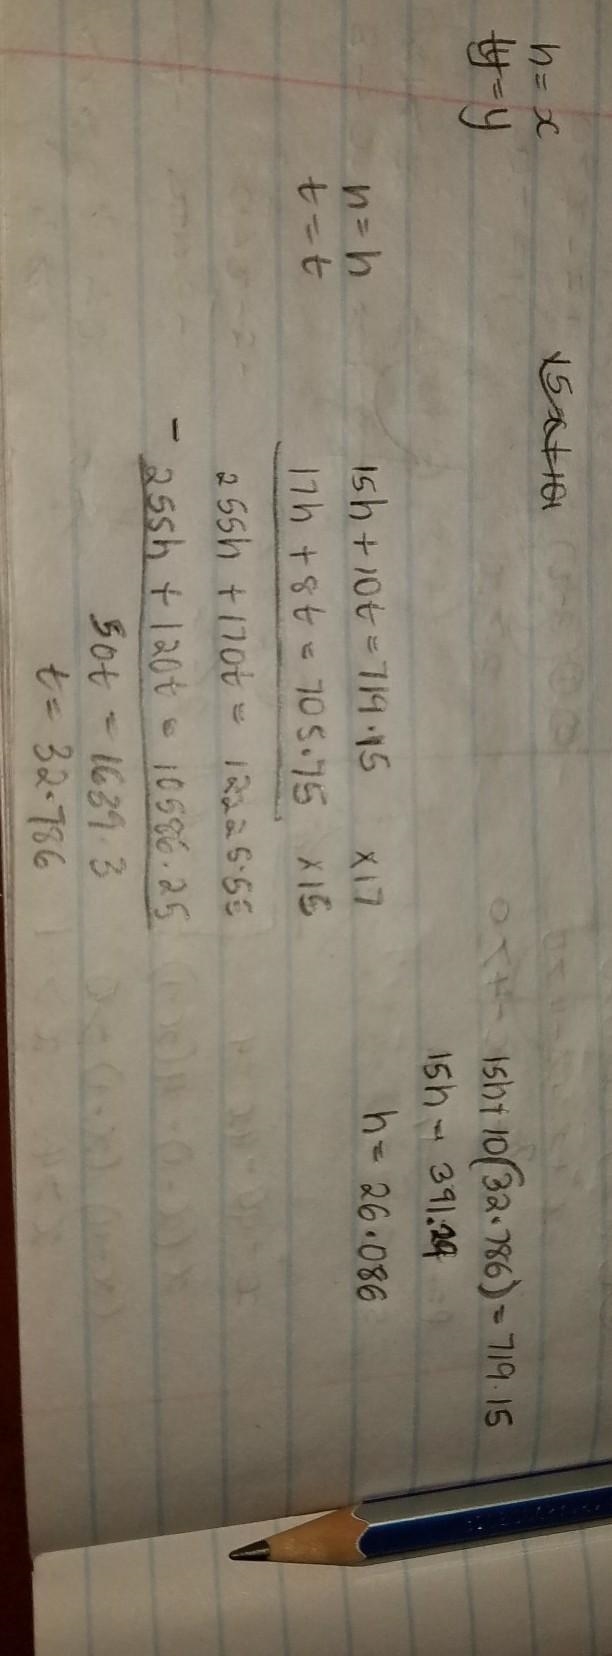 h = x
ty = y
15x + 10
h = h
t = t
15h + 10t = 719.15 x17
17h + 8t = 705.75 x15
255h + 170t = 12225.55
- 255h + 120t = 10586.25
50t = 1639.3
t = 32.786
15h + 10(32.786) = 719.15
15h = 391.29
h = 26.086